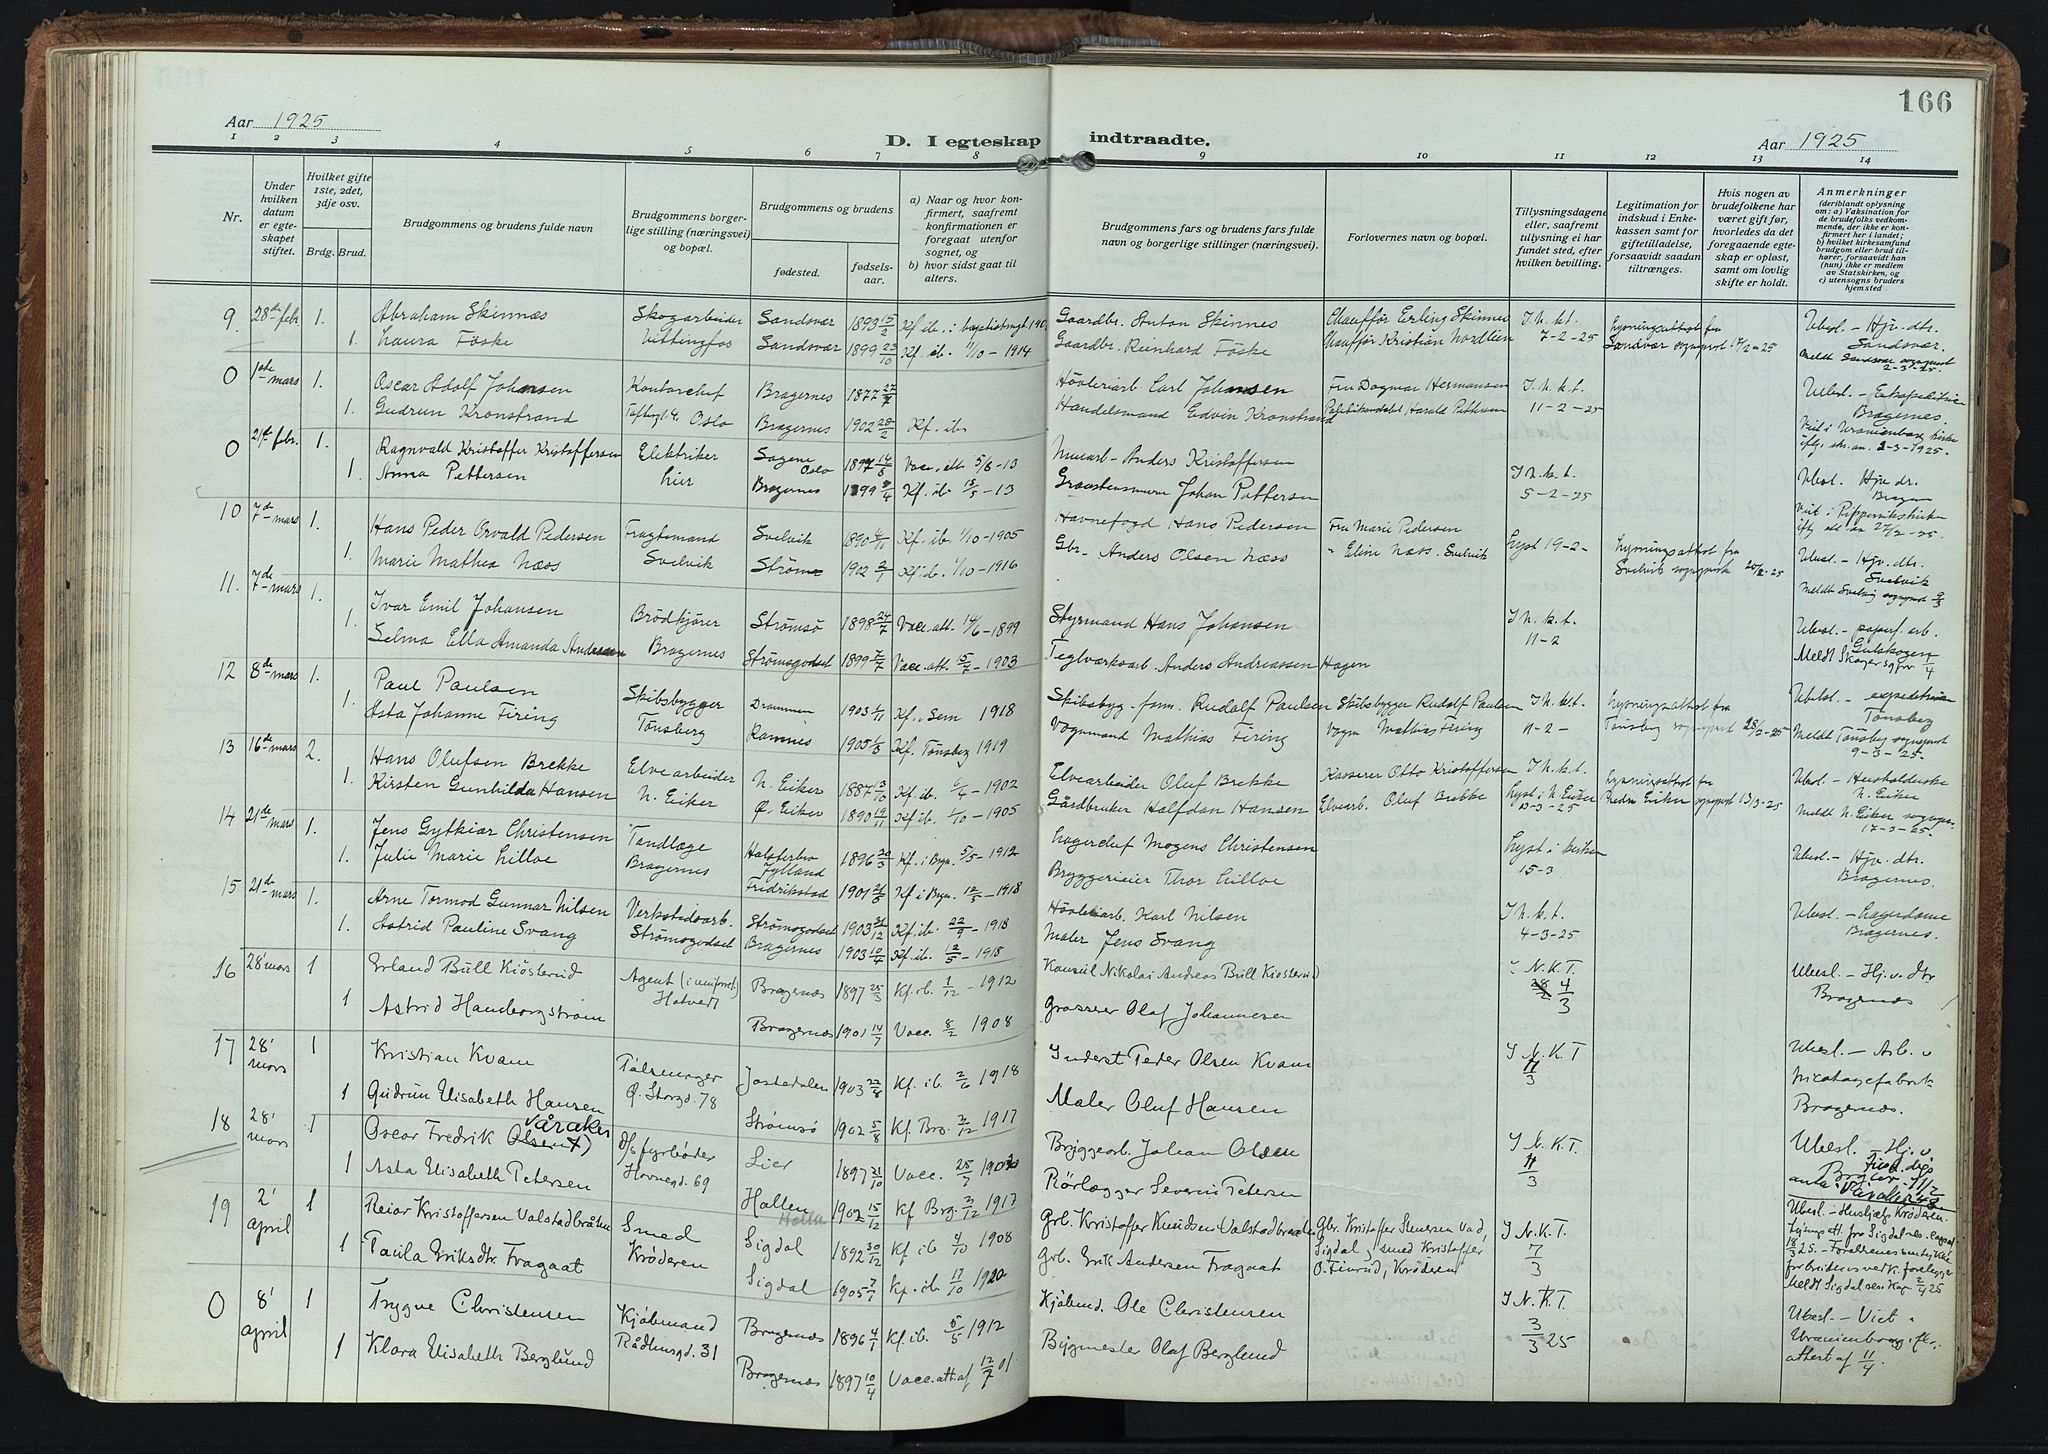 166
Aar 1925
D. I egteskap indtraadte.
Aar 1925
1 2 3 4 5 6 7 8 9 10 11 12 13 14
Nr.
Under hvilken datum er egteskapet stiftet.
Hvilket gifte 1ste, 2det, 3dje osv.
Brdg. Brud.
Brudgommens og brudens fulde navn
Brudgommens borgerlige stilling (næringsvei) og bopæl.
Brudgommens og brudens
fødested.
fødselsaar.
a) Naar og hvor konfirmert, saafremt konfirmationen er foregaat utenfor sognet, og
b) hvor sidst gaat til alters.
Brudgommens fars og brudens fars fulde navn og borgerlige stillinger (næringsvei).
Forlovernes navn og bopæl.
Tillysningsdagene eller, saafremt tillysning ei har fundet sted, efter hvilken bevilling.
Legitimation for indskud i Enkekassen samt for giftetilladelse, forsaavidt saadan tiltrænges.
Hvis nogen av brudefolkene har været gift før, hvorledes da det foregaaende egteskap er opløst, samt om lovlig skifte er holdt.
Anmerkninger
(deriblandt oplysning om: a) Vaksination for de brudefolks vedkommende, der ikke er konfirmert her i landet; b) hvilket kirkesamfund brudgom eller brud tilhører, forsaavidt han (hun) ikke er medlem av Statskirken, og c) utensogns bruders hjemsted
9 28de febr. 1. Abraham Skinnæs Skogarbeider Sandsvær 1893 15/2 Kf. ib. i baptistmgh. Gaardbr. Anton Skinnes Chauffør Erling Skinnes I. N. k. t. Lysningsattest fra Ubesl. – Hjv. dtr.
1. Laura Föske Vittingfos Sandsvær 1899 23/10 Kf. ib. 11/10 – 1914 Gaardbr. Reinhard Föske Chauffør Kristian Nordlien 7-2-25 Sandsvær sogneprest 17/2-25 Sandsvær.
Meldt Sandsvær sogneprest 2-3-25.
0 1ste mars 1. Oscar Adolf Johansen Kontorchef Bragernes 1877 27/7 Hövleriarb. Carl Johansen Fru Dagmar Hermansen I. N. k. t. Ubesl. – Ekspeditrise
1. Gudrun Kronstrand Oslo Bragernes 1902 28/2 Kf. ib. Handelsmand Edvin Kronstrand Harald Pettersen 11-2-25 Bragernes.
Viet i Uranienborg kirke iflg. 2-3-1925.
0 21de febr. 1. Ragnvald Kristoffer Kristoffersen Elektriker Sagene Oslo 1897 14/8 Vacc. att. 5/6-13 Murarb. Anders Kristoffersen I. N. k. t. Ubesl. Hjv. dr.
1. Anna Pettersen hier Bragernes 1899 9/4 Kf. ib. 18/5-13 Johan Pettersen 5-2-25
Viet i Pipervikskirke iflg. att av 27/2-25.
10 7de mars 1. Hans Peder Orvald Pedersen Fragtemand Svelvik 1890 6/11 Kf. ib. 1/10-1905 Havnefogd Hans Pedersen Fru Marie Pedersen Lyst 19-2- Lysningsattest fra Ubesl. – Hjv. dtr.
1. Marie Mathea Næss Svelvik Strömm 1902 2/1 Kf. ib. 1/10-1916 Gbr. Anders Olsen Næss " Eline Næss. Svelvik Svelvik sogneprest 20/2-25 Svelvik
Meldt Svelvik sogneprest 9/3
11. 7de mars 1. Ivar Emil Johansen Brödkjörer Strömsö 1898 24/7 Vacc. att. 14/6-1899 Styrmand Hans Johansen I. N. k. t. Ubesl. – papirf. arb.
1. Selma Ella Amanda Andreassen Bragernes Strömsgodset 1899 7/7 Vacc. att. 15/7-1903 Teglværksarb. Anders Andreassen Hagen 11-2 Gulskogen
Meldt Skoger sgpr 1/4
12 8de mars 1. Paul Paulsen Skibsbygger Drammen 1903 1/11 Kf. Sem 1918 Skibsbyg. form. Rudolf Paulsen Skibsbygger Rudolf Paulsen I. N. k. t. Lysningsattest fra Ubesl. – expeditrise
1. Asta Johanne Firing Tønsberg Ramnes 1905 1/3 Kf. Tønsberg 1919 Vognmand Mathias Firing Vogn Mathias Firing 11-2- Tønsberg sogneprest 28/2-25 Tønsberg
Meldt Tønsberg sogneprest 9-3-25.
13 16de mars 2. Hans Olufsen Brekke Elvearbeider N. Eiker 1887 13/10 Kf. ib. 6/4-1902 Elvearbeider Oluf Brekke Kasserer Otto Kristoffersen I. N. k. t. Lysningsattest fra Ubesl. – Husholderske
1. Kirsten Gunhilda Hansen N. Eiker Ø. Eiker 1890 19/11 Kf. ib. 1/10-1905 Gårdbruker Halfdan Hansen Elvearb. Oluf Brekke Lyst i N. Eiker 10-3-25 Nedre Eiker sogneprest 13/3-25 N. Eiker
Meldt N. Eiker sognepr. 17-3-25.
14 21de mars 1. Jens Gytkiær Christensen Tandlæge Jylland 1896 20/3 Kf. i Bgn. 5/5-1912 Lagerchef Mogens Christensen Lyst i kirken Ubesl. – Hjv. dtr.
1. Julie Marie Lilloe Bragernes Fredrikstad 1901 26/5 Kf. i Bgn. 12/5-1918 Bryggerieier Thor Lilloe 15-3 Bragernes.
15 21de mars 1. Arne Tormod Gunnar Nilsen Verkstedsarb. Strömsgodset 1903 31/12 Kf. ib. 22/9-1918 Hövleriarb. Karl Nilsen I. N. k. t. Ubesl. – Lagerdame
1. Astrid Pauline Svang Strömsgodset Bragernes 1903 10/4 Kf. ib. 12/5-1918 Maler Jens Svang 4-3-25 Bragernes.
16 28' mars 1 Erland Bull Kiøsterud Agent Bragernæs 1897 25/3 Kf. ib. 1/12-1912 Konsul Nikolai Andreas Bull Kiøsterud I N. K. T. Ubesl. – Hj. v. dtr
1 Astrid Hamborgstrøm Hotvedt Bragernæs 1901 14/7 Vacc. 8/2 1908 Grosserer Olaf Johannesen 4/3 Bragernæs
17 28' mars 1 Kristian Kvam Pølsemager Jostedalen 1903 22/8 Kf. ib. 2/6 1918 Inderst Peder Olsen Kvam I N. K. T Ubesl. – Arb. v
1 Gudrun Elisabeth Hansen Ø. Storgd. 78 Strømsø 1902 5/8 Kf. Brg. 2/12 1917 Maler Oluf Hansen 11/3 Nicotagefabrik Bragernæs.
18 28' mars 1 Oscar Fredrik Olsen Våraker D/s fyrbøter Lier 1897 21/10 Vacc. 25/7 Bryggearb. Johan Olsen I N. K. T. Ubesl. – Hj. v.
1 Asta Elisabeth Petersen Havnegd. 69 Hollen Holla 1902 15/12 Kf Brg. 2/12 1917 Rørlægger Severin Petersen 11/3
19 2' april 1 Reior Kristoffersen Valstadbråten Smed Sigdal 1892 30/12 Kf. ib. 4/10 1908 Grb. Kristoffer Knudsen Valstadbraaten Gbr. Kristoffer Stenersen Vad, Sigdal, smed Kristoffer O. Finrud, Krøderen I N. K. T. Ubesl. – Krøderen.
1 Paula Eriksdtr. Fragaat Krøderen Sigdal 1905 7/7 Kf. ib. 17/10 1920 Grb. Erik Andersen Fragaat 7/3 Meldt Sigdal 2/4 25
0 8' april 1 Trygve Christensen Kjøbmand Bragernæs 1896 4/1 Kf. ib. 5/5 1912 Kjøbmd. Ole Christensen I. N. K. T. Ubesl. – Viet i
1 Klara Elisabeth Berglund Rådhusgd. 31 Bragernæs 1897 10/4 Vacc. att. af 12/7 01 Bygmester Olaf Berglund 3/3 25 Uranienborg attest af 11/4.